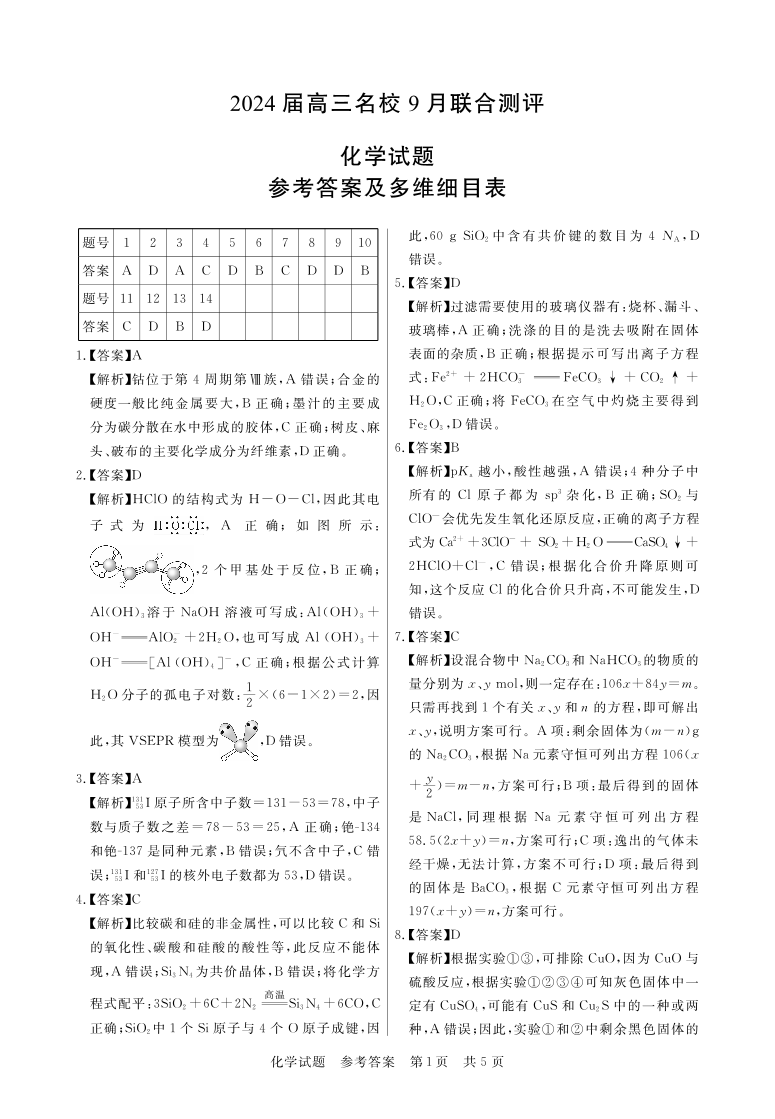 2024 届高三名校 9 月联合测评
化学试题
参考答案及多维细目表
题号 1 2 3 4 5 6 7 8 9 10
答案 A D A C D B C D D B
题号 11 12 13 14
答案 C D B D
1.【答案】A
【解析】钴位于第 4 周期第Ⅷ族,A 错误;合金的
硬度一般比纯金属要大,B 正确;墨汁的主要成
分为碳分散在水中形成的胶体,C 正确;树皮、麻
头、破布的主要化学成分为纤维素,D 正确。
2.【答案】D
【解析】HClO 的结构式为 H—O—Cl,因此其电
子式为 H:O:Cl:,A 正确;如图所示:
,2 个甲基处于反位,B 正确;
Al(OH)₃溶于 NaOH 溶液可写成:Al(OH)₃+
OH⁻══AlO₂⁻+2H₂O,也可写成 Al(OH)₃+
OH⁻══[Al(OH)₄]⁻,C 正确;根据公式计算
H₂O 分子的孤电子对数:1/2×(6-1×2)=2,因
此,其 VSEPR 模型为,D 错误。
3.【答案】A
【解析】¹³¹₅₃I 原子所含中子数=131-53=78,中子
数与质子数之差=78-53=25,A 正确;铯-134
和铯-137 是同种元素,B 错误;氕不含中子,C 错
误;¹³¹₅₃I 和¹²⁷₅₃I 的核外电子数都为 53,D 错误。
4.【答案】C
【解析】比较碳和硅的非金属性,可以比较 C 和 Si
的氧化性、碳酸和硅酸的酸性等,此反应不能体
现,A 错误;Si₃N₄为共价晶体,B 错误;将化学方
程式配平:3SiO₂+6C+2N₂ ══高温 Si₃N₄+6CO,C
正确;SiO₂中 1 个 Si 原子与 4 个 O 原子成键,因
此,60 g SiO₂中含有共价键的数目为 4 N_A,D
错误。
5.【答案】D
【解析】过滤需要使用的玻璃仪器有:烧杯、漏斗、
玻璃棒,A 正确;洗涤的目的是洗去吸附在固体
表面的杂质,B 正确;根据提示可写出离子方程
式:Fe²⁺+2HCO₃⁻══FeCO₃↓+CO₂↑+
H₂O,C 正确;将 FeCO₃在空气中灼烧主要得到
Fe₂O₃,D 错误。
6.【答案】B
【解析】pKₐ越小,酸性越强,A 错误;4 种分子中
所有的 Cl 原子都为 sp³杂化,B 正确;SO₂与
ClO⁻会优先发生氧化还原反应,正确的离子方程
式为 Ca²⁺+3ClO⁻+SO₂+H₂O══CaSO₄↓+
2HClO+Cl⁻,C 错误;根据化合价升降原则可
知,这个反应 Cl 的化合价只升高,不可能发生,D
错误。
7.【答案】C
【解析】设混合物中 Na₂CO₃和 NaHCO₃的物质的
量分别为 x、y mol,则一定存在:106x+84y=m。
只需再找到 1 个有关 x、y 和 n 的方程,即可解出
x、y,说明方案可行。A 项:剩余固体为(m-n)g
的 Na₂CO₃,根据 Na 元素守恒可列出方程 106(x
+y/2)=m-n,方案可行;B 项:最后得到的固体
是 NaCl,同理根据 Na 元素守恒可列出方程
58.5(2x+y)=n,方案可行;C 项:逸出的气体未
经干燥,无法计算,方案不可行;D 项:最后得到
的固体是 BaCO₃,根据 C 元素守恒可列出方程
197(x+y)=n,方案可行。
8.【答案】D
【解析】根据实验①③,可排除 CuO,因为 CuO 与
硫酸反应,根据实验①②③④可知灰色固体中一
定有 CuSO₄,可能有 CuS 和 Cu₂S 中的一种或两
种,A 错误;因此,实验①和②中剩余黑色固体的
化学试题 参考答案 第 1 页 共 5 页